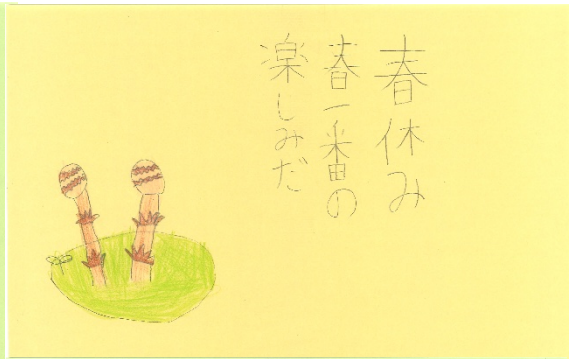 春休み
春一番の
楽しみだ